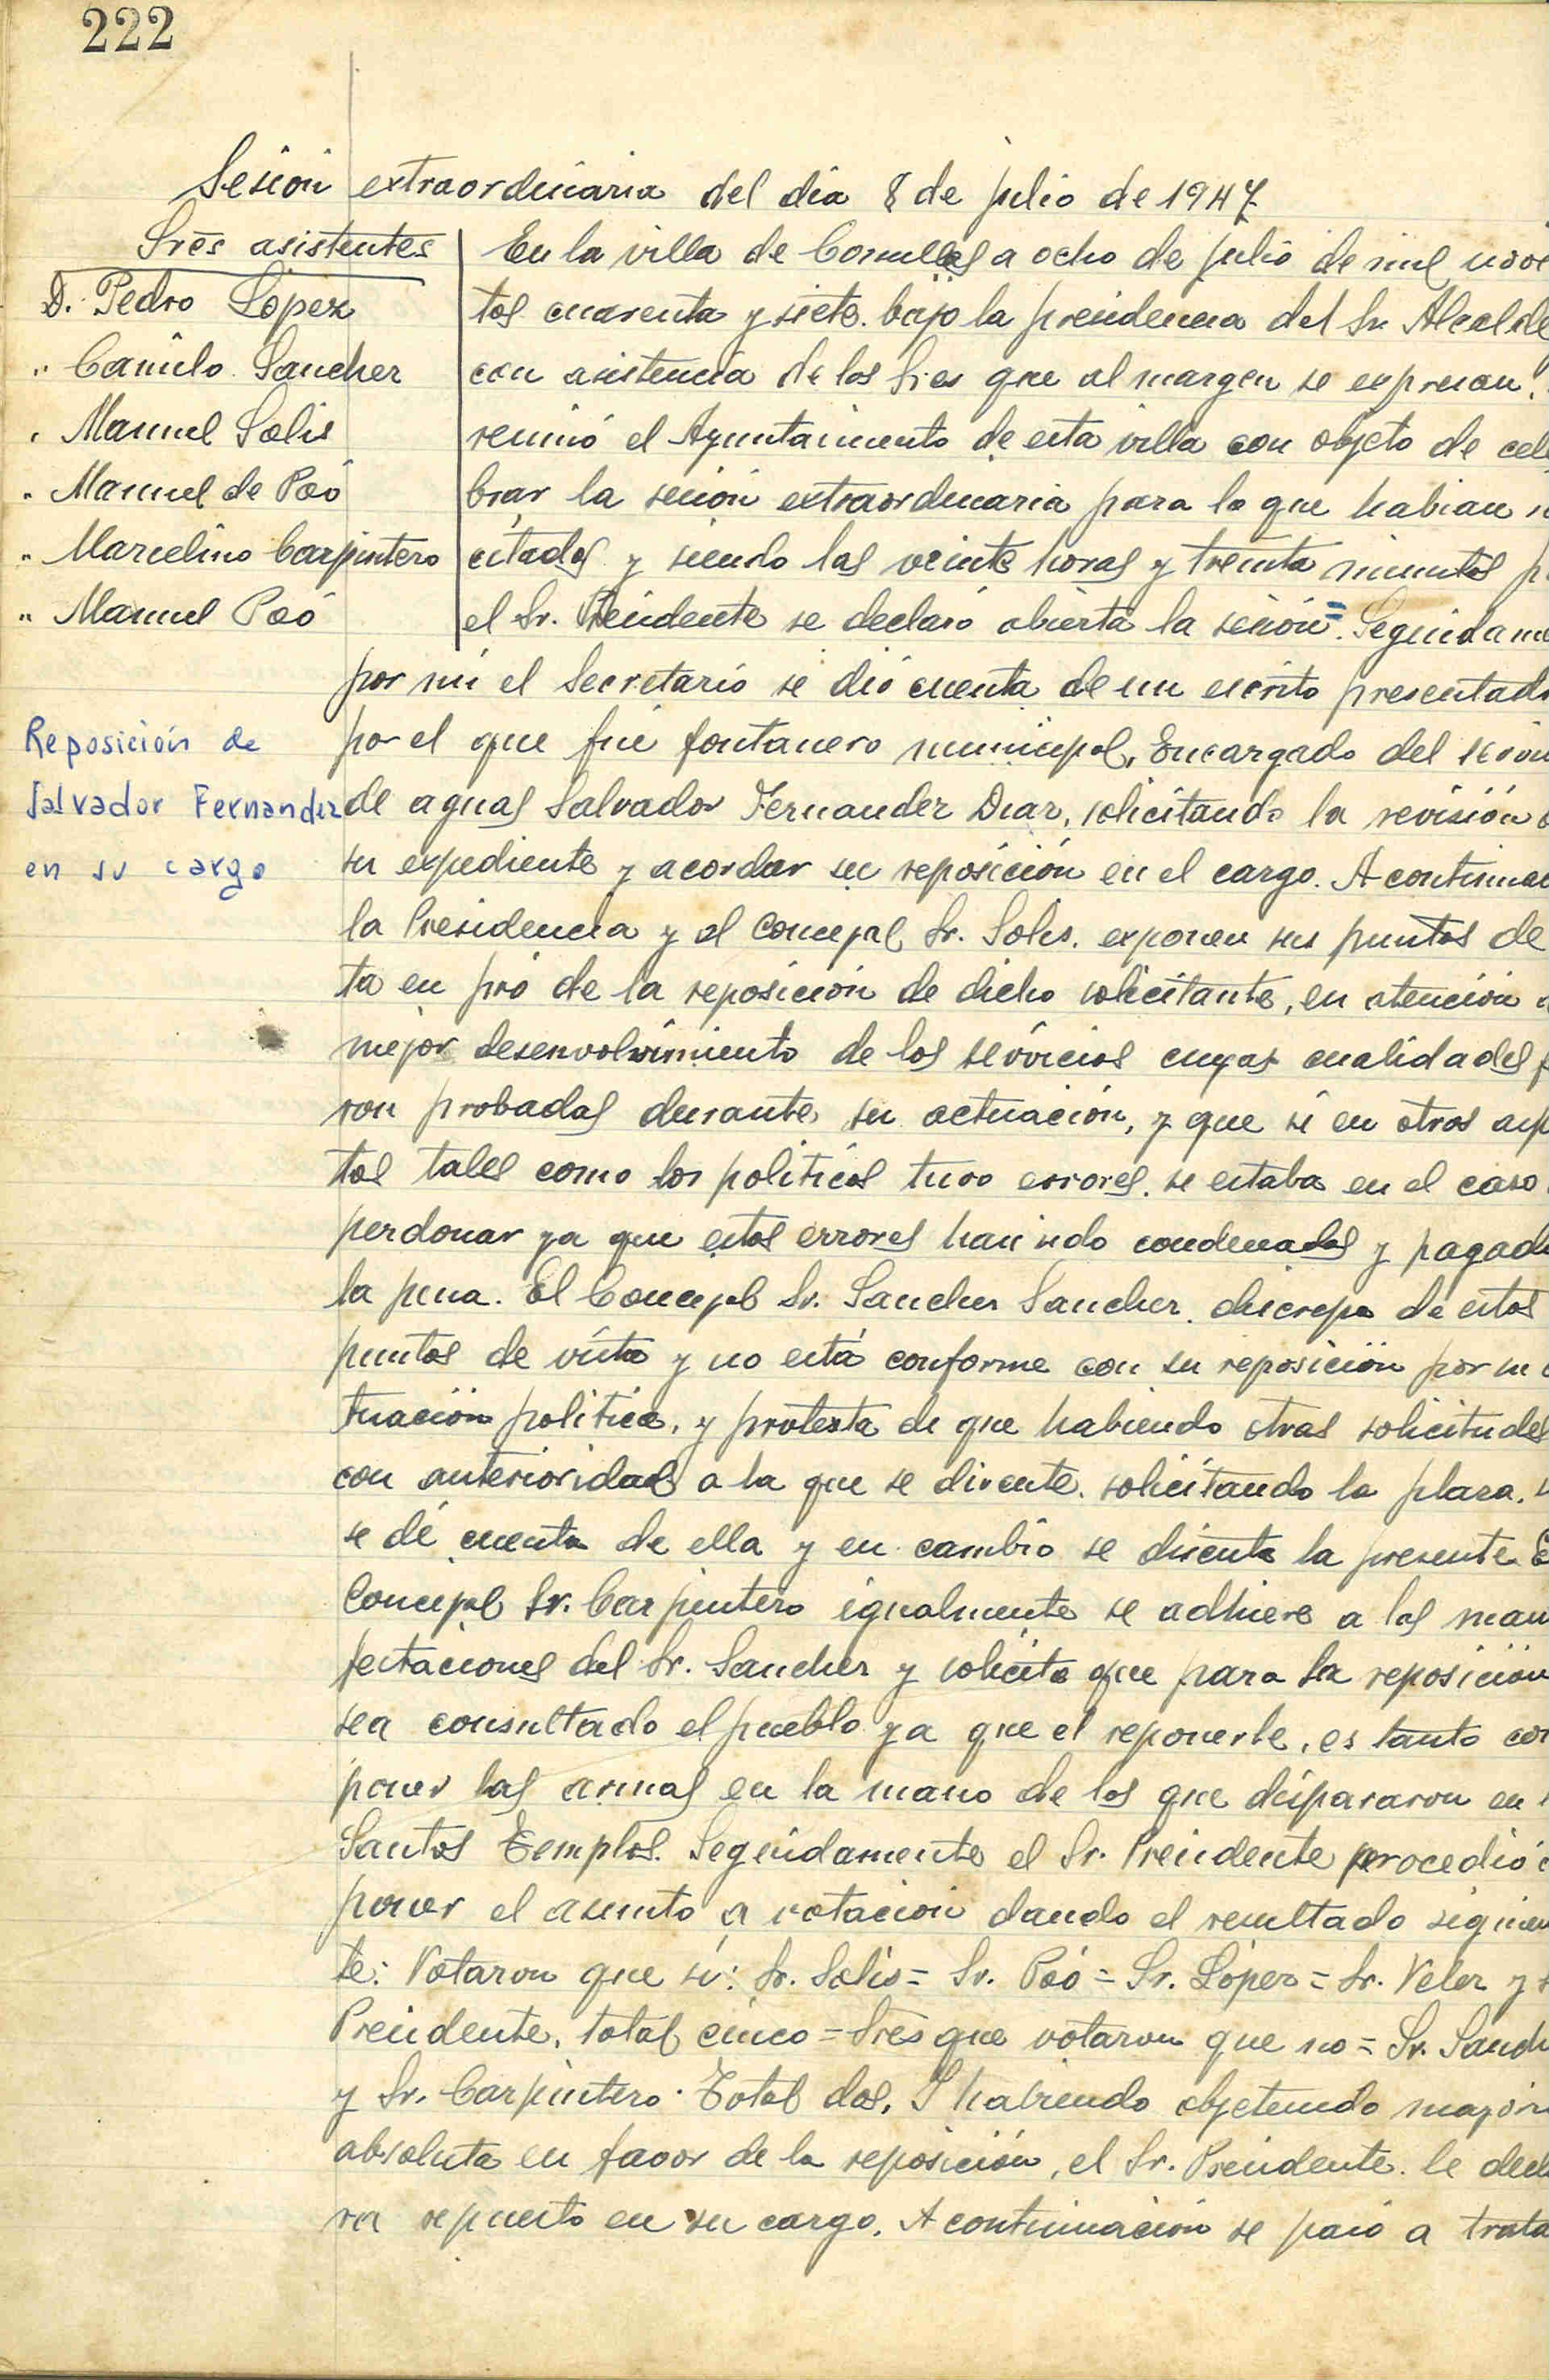 222
Sesion extraordinaria del dia 8 de julio de 1947
Sres asistentes
D. Pedro López
" Camilo Sanchez
" Manuel Solis
" Manuel de Poó
" Marcelino Carpintero
" Manuel Poó
Reposición de
Salvador Fernandez
en su cargo
En la villa de Comillas a ocho de julio de mil nove
tos cuarenta y siete. bajo la presidencia del Sr. Alcalde
con asistencia de los Sres que al margen se expresan.
reunió el Ayuntamiento de esta villa con objeto de cele
brar la sesión extraordinaria para lo que habian
citados y siendo las veinte horas y treinta minutos p
el Sr. Presidente se declaró abierta la sesión=. Seguidame
por mi el Secretario se dió cuenta de un escrito presentado
por el que fué fontanero municipal, Encargado del servi
de aguas Salvador Fernandez Diaz, solicitando la revisión
su expediente y acordar su reposición en el cargo. A continuac
la Presidencia y el Concejal Sr. Solis. exponen sus puntos de
ta en pró de la reposición de dicho solicitante, en atención
mejor desenvolvimiento de los servicios cuyas cualidades f
ron probadas durante su actuación, y que si en otros asp
tos tales como los politicos tuvo errores. se estaba en el caso
perdonar ya que estos errores han sido condenados y pagado
la pena. El Concejal Sr. Sanchez Sanchez. discrepa de estos
puntos de vista y no está conforme con su reposición por su
tuación politica, y protesta de que habiendo otras solicitudes
con anterioridad a la que se discute. solicitando la plaza.
se dé cuenta de ella y en cambio se discuta la presente. E
Concejal Sr. Carpintero igualmente se adhiere a las mani
festaciones del Sr. Sanchez y solicita que para la reposición
sea consultado el pueblo ya que el reponerle, es tanto com
poner las armas en la mano de los que dispararon en
Santos Templos. Seguidamente el Sr. Presidente procedió
poner el asunto a votación dando el resultado siguien
te: Votaron que si: Sr. Solis= Sr. Poó= Sr. López= Sr. Velez y
Presidente, total cinco= Sres que votaron que no= Sr. Sanch
y Sr. Carpintero. Total dos. Y habiendo objetenido mayori
absoluta en favor de la reposición, el Sr. Presidente. le decla
ra repuesto en su cargo. A continuación se pasó a trata